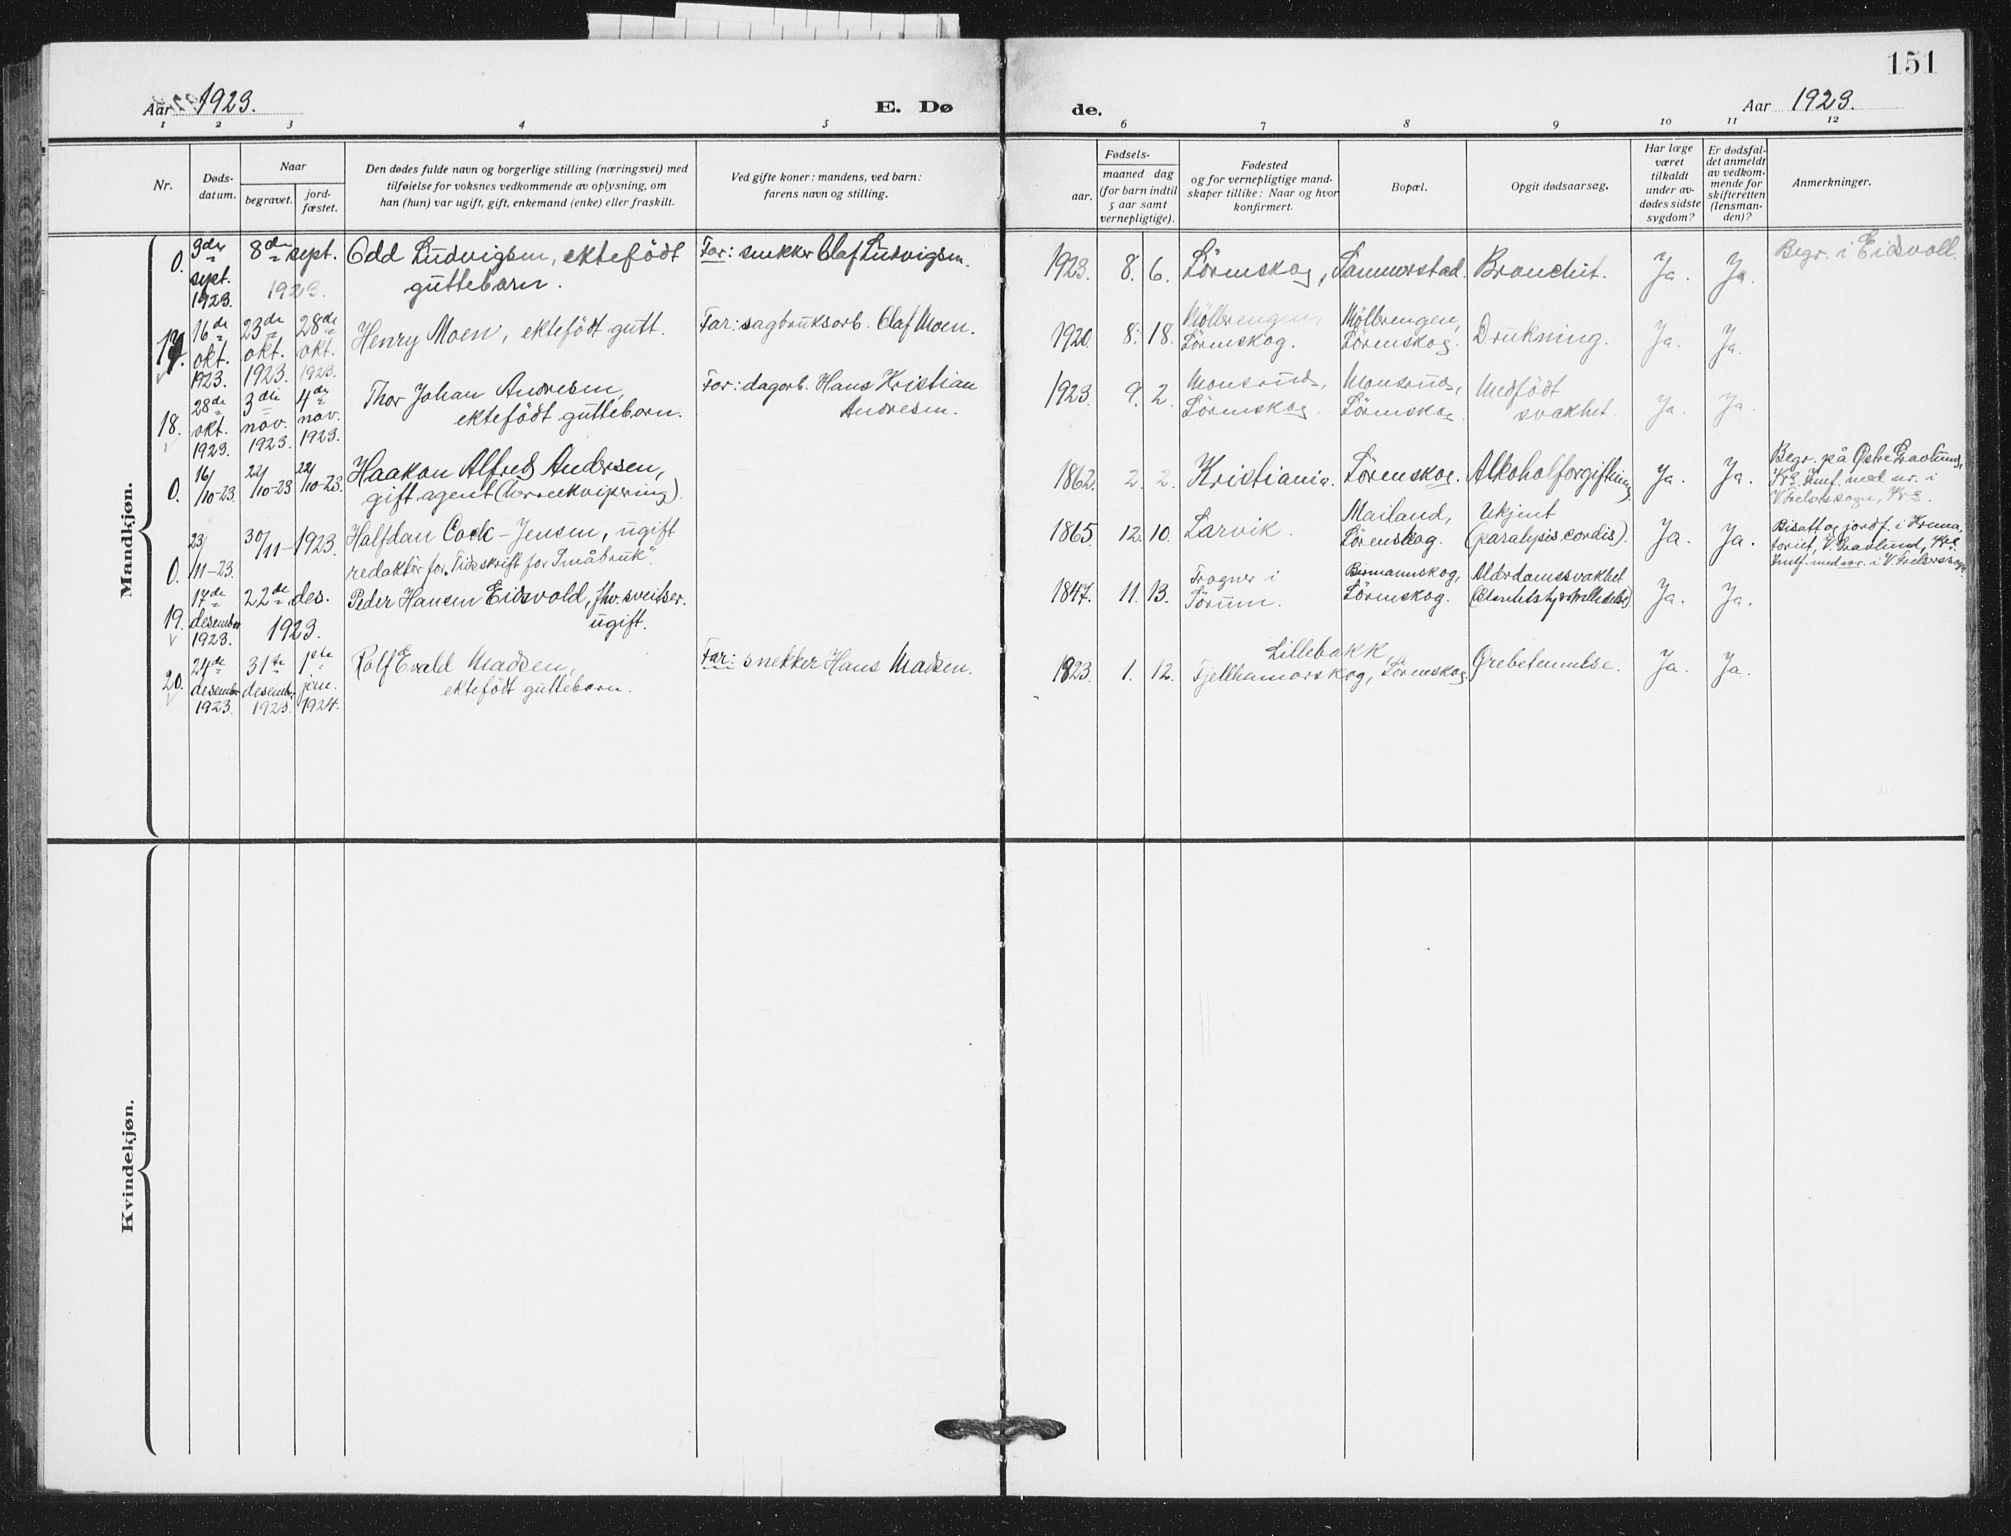 151
Aar 1923.
E. Døde.
Aar 1923.
1 2 3 4 5 6 7 8 9 10 11 12
Nr.
Dødsdatum.
Naar
begravet.
jordfæstet.
Den dødes fulde navn og borgerlige stilling (næringsvei) med
tilføielse for voksnes vedkommende av oplysning, om
han (hun) var ugift, gift, enkemand (enke) eller fraskilt.
Ved gifte koner: mandens, ved barn:
farens navn og stilling.
Fødsels-
aar.
maaned dag
(for barn indtil
5 aar samt
vernepligtige).
Fødested
og for vernepligtige mand-
skaper tillike: Naar og hvor
konfirmert.
Bopæl.
Opgit dødsaarsag.
Har læge
været
tilkaldt
under av-
dødes sidste
sygdom?
Er dødsfal-
det anmeldt
av vedkom-
mende for
skifteretten
(lensman-
den)?
Anmerkninger.
Mandkjøn.
0. 3die sept. 1923. 8de sept. 1923. Odd Ludvigsen, ektefödt
guttebarn.
Far: snekker Olaf Ludvigsen.
1923. 8. 6. Lörenskog, Sammerstad. Bronchit. Ja. Ja. Begr. i Eidsvoll.
17. 16de okt. 1923. 23de okt. 1923. 28de okt. 1923. Henry Moen, ektefödt gutt.
Far: sagbruksarb. Olaf Moen.
1920. 8. 18. Möllerengen, Lörenskog. Möllerengen, Lörenskog. Drukning. Ja. Ja.
18. 28de okt. 1923. 3die nov. 1923. 4de nov. 1923. Thor Johan Andresen,
ektefödt guttebarn.
Far: dagarb. Hans Kristian
Andresen.
1923. 9. 2. Monsruds, Lörenskog. Monsruds, Lörenskog. Medfödt
svakhet. Ja. Ja.
0. 16/10-23. 22/10-23 22/10-23. Haakon Alfred Andersen,
gift agent (herreekvipering).
1862. 2. 2. Kristiania. Lörenskog. Alkoholforgiftning Ja. Ja. Begr. på Østre Gravlund,
Kra. Innf. med nr. i
sogn, Kra.
0. 23/11-23. 30/11-1923. Halfdan Cock-Jensen, ugift
redaktör for „Tidsskrift for Småbruk".
1865. 12. 10. Larvik. Mailand, Lörenskog. Ukjent
(paralysis cordis). Ja. Ja. Bisatt og jordf. i Krema-
toriet, V. Gravlund, Kra.
Innf. med nr. i V.
19. 17de desember 1923. 22de des. 1923. Peder Hansen Eidsvold, fhv. sveitser.
ugift.
1847. 11. 13. Frogner i
Sörum. Lörenskog. Alderdomssvakhet Ja. Ja.
20. 24de desember 1923. 31te desember 1923. 1ste jan. 1924. Rolf Evald Madsen,
ektefödt guttebarn.
Far: snekker Hans Madsen.
1923. 1. 12. Lillebakk,
Fjellhamarskog, Lörenskog. Ørebetennelse. Ja. Ja.
Kvindekjøn.